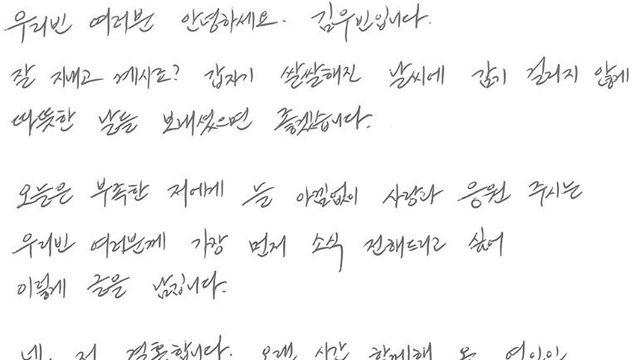 우리빈 여러분 안녕하세요. 김우빈입니다.
잘 지내고 계시죠? 갑자기 쌀쌀해진 날씨에 감기 걸리지 않게
따뜻한 날들 보내셨으면 좋겠습니다.
오늘은 부족한 저에게 늘 아낌없이 사랑과 응원 주시는
우리빈 여러분께 가장 먼저 소식 전해드리고 싶어
이렇게 글을 남깁니다.
네. 저 결혼합니다. 오랜 시간 함께해 온